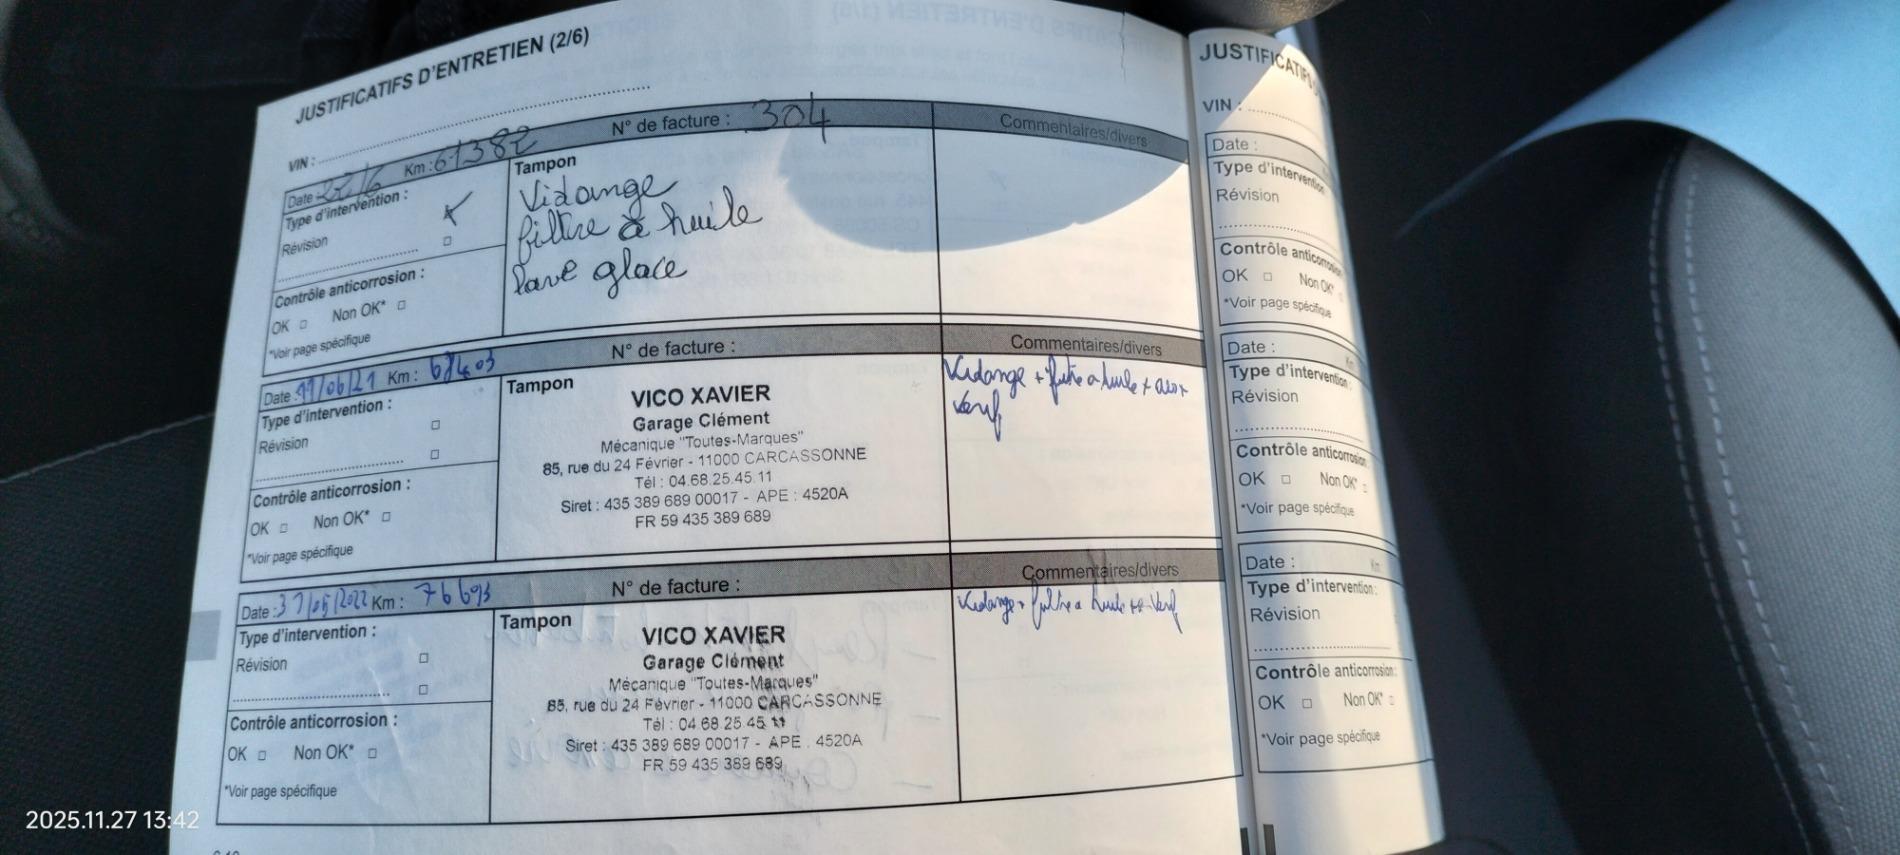 JUSTIFICATIFS D'ENTRETIEN (2/6)
VIN :
Date Km : 61382
N° de facture : 304
Commentaires/divers
Type d'intervention :
Révision
Contrôle anticorrosion :
OK Non OK*
*Voir page spécifique
Tampon
Vidange
filtre à huile
lave glace
Date : 11/06/21 Km :
N° de facture :
Commentaires/divers
Type d'intervention :
Révision
Contrôle anticorrosion :
OK Non OK*
*Voir page spécifique
Tampon
VICO XAVIER
Garage Clément
Mécanique "Toutes-Marques"
85, rue du 24 Février - 11000 CARCASSONNE
Tél : 04.68.25.45.11
Siret : 435 389 689 00017 - APE : 4520A
FR 59 435 389 689
Vidange + filtre a huile +
Date : 31/05/2022 Km :
N° de facture :
Commentaires/divers
Type d'intervention :
Révision
Contrôle anticorrosion :
OK Non OK*
*Voir page spécifique
Tampon
VICO XAVIER
Garage Clément
Mécanique "Toutes-Marques"
85, rue du 24 Février - 11000 CARCASSONNE
Tél : 04 68 25 45 11
Siret : 435 389 689 00017 - APE : 4520A
FR 59 435 389 689
Vidange + filtre a huile
JUSTIFICATIFS
VIN :
Date :
Type d'intervention
Révision
Contrôle anticorrosion
OK Non OK*
*Voir page spécifique
Date : Km
Type d'intervention :
Révision
Contrôle anticorrosion
OK Non OK*
*Voir page spécifique
Date : Km
Type d'intervention :
Révision
Contrôle anticorrosion:
OK Non OK*
*Voir page spécifique
2025.11.27 13:42